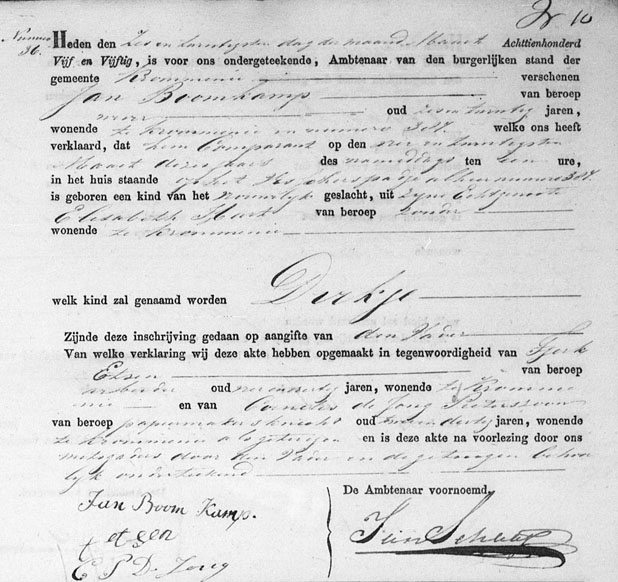 10
Nummer 36.
Heden den Zes en twintigsten dag der maand Maart Achttienhonderd
Vijf en Vijftig, is voor ons ondergeteekende, Ambtenaar van den burgerlijken stand der
gemeente Krommenie verschenen
Jan Boomkamp van beroep
oud twintig jaren,
wonende te Krommenie in nummero welke ons heeft
verklaard, dat hem Comparant op den en twintigsten
Maart dezes Jaars des namiddags ten Een ure,
in het huis staande op het nummero
is geboren een kind van het geslacht, uit zijne Echtgenoote
Elisabeth van beroep zonder
wonende te Krommenie
welk kind zal genaamd worden Dirkje
Zijnde deze inschrijving gedaan op aangifte van den Vader
Van welke verklaring wij deze akte hebben opgemaakt in tegenwoordigheid van Tjerk
Etsen van beroep
arbeider oud jaren, wonende te Kromme
nie en van Cornelis de Jong Pieterszoon
van beroep papiermakersknecht oud jaren, wonende
te Krommenie als getuigen en is deze akte na voorlezing door ons
mitsgaders door den Vader en de getuigen behoor
lijk onderteekend
De Ambtenaar voornoemd,
Jan Boom Kamp.
C P D. Jong